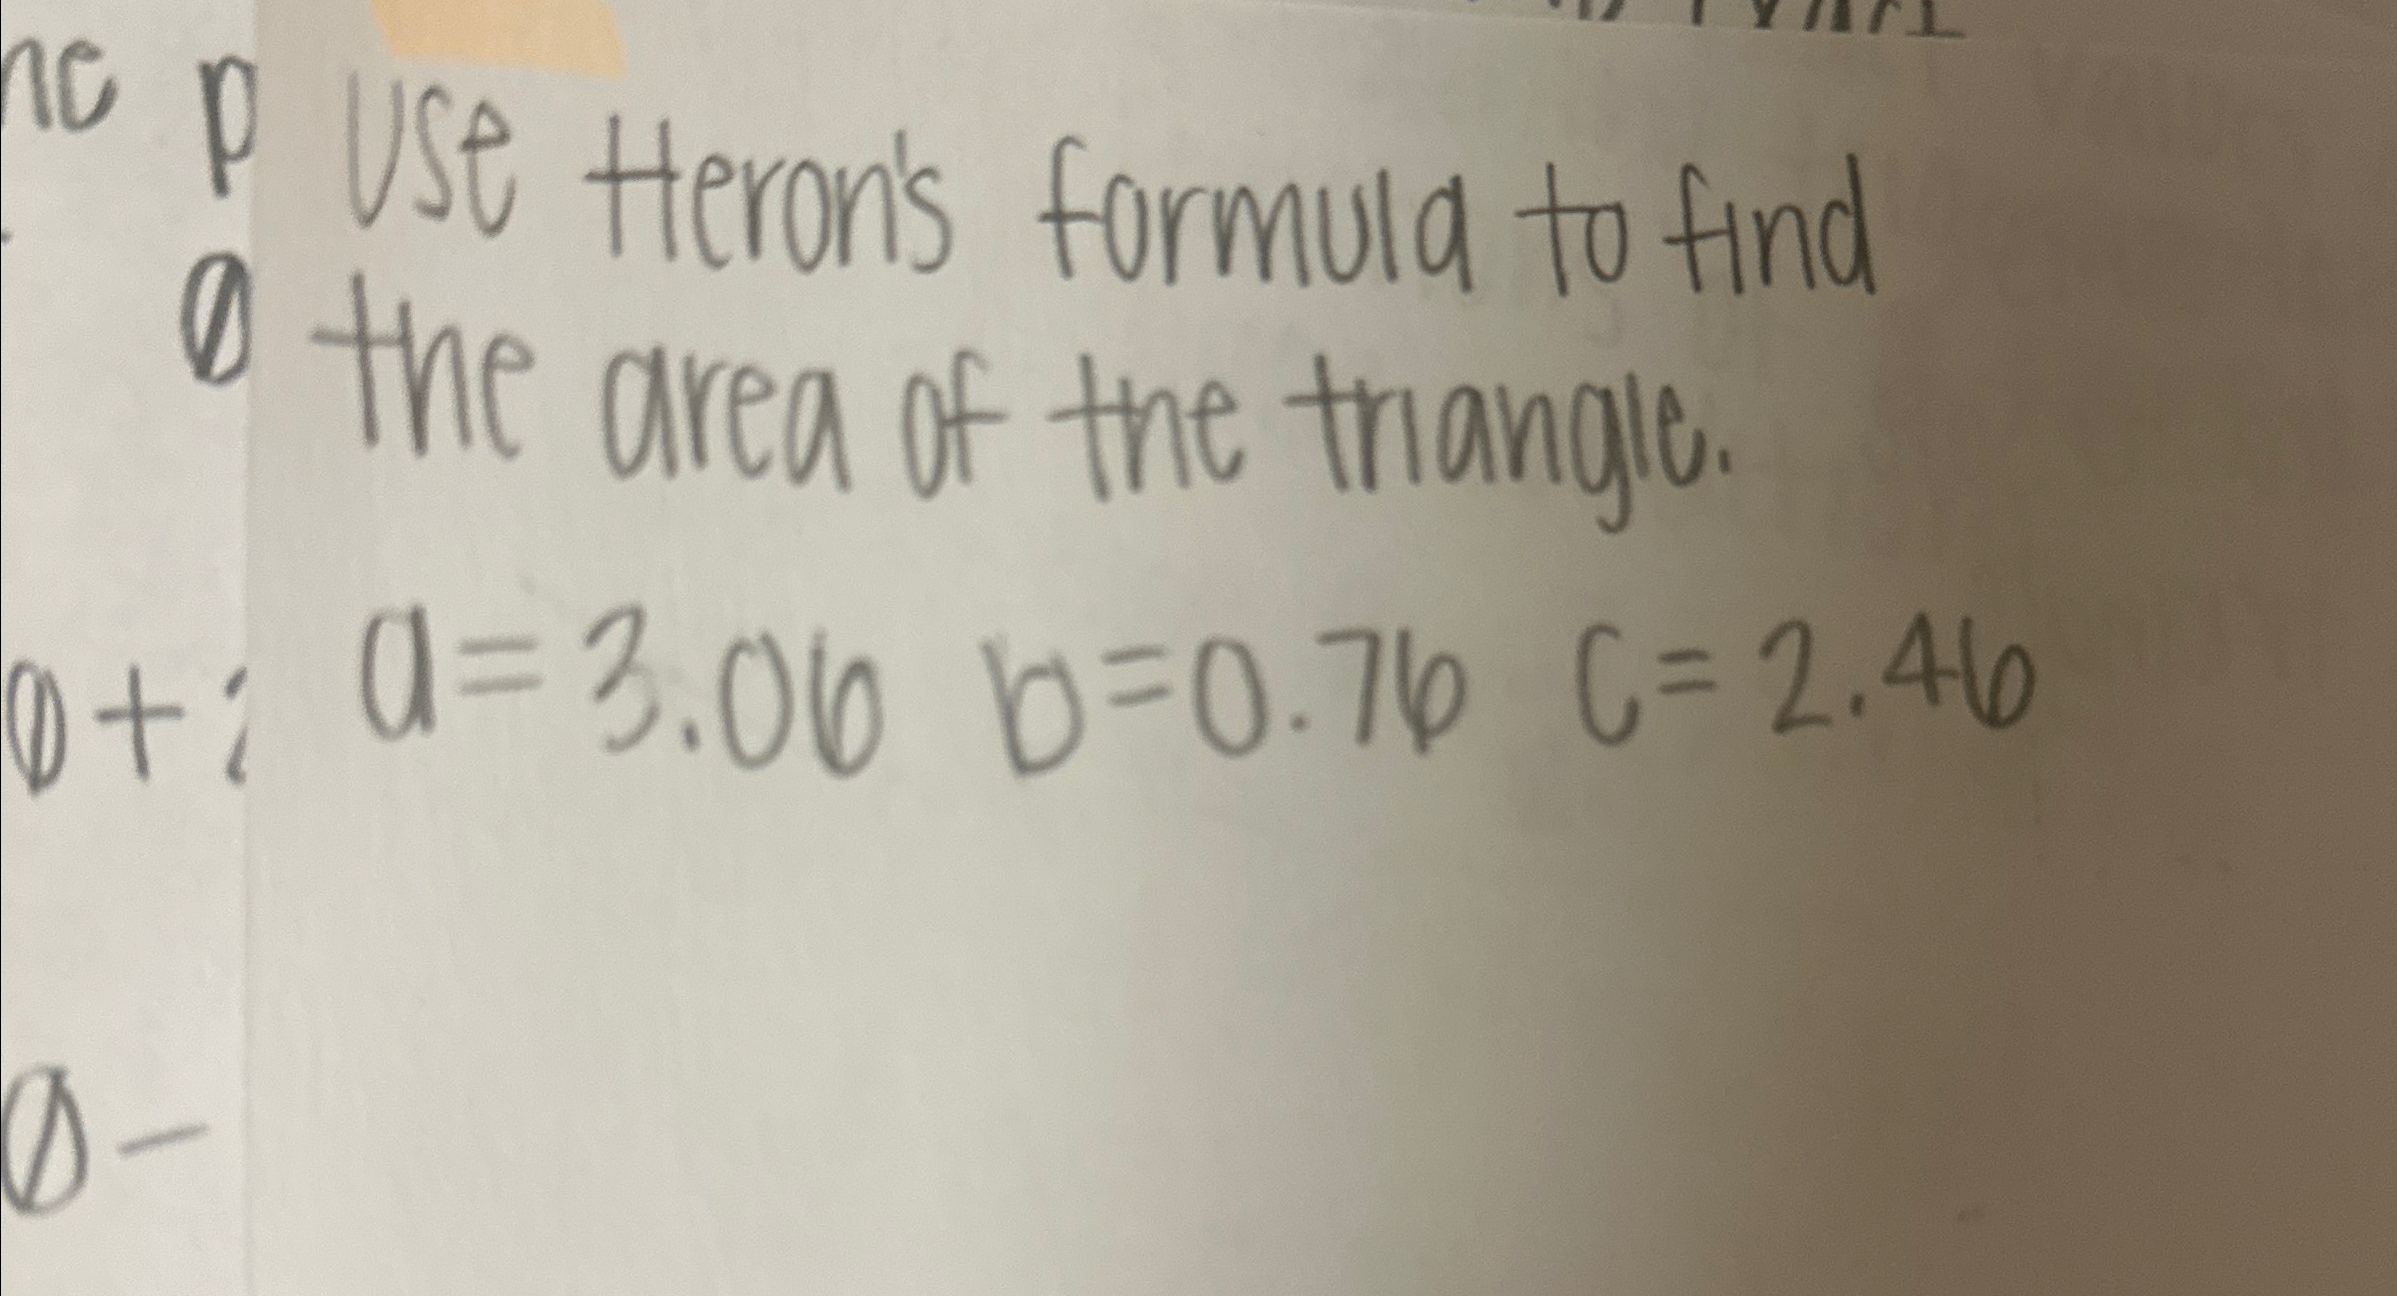 ne p
use Heron's formula to find
0 the area of the triangle.
0+ a=3.06 b=0.76 c=2.46
0-